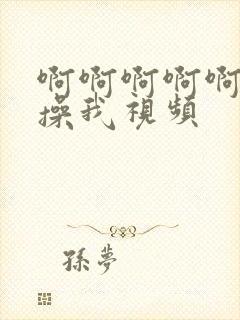 啊啊啊啊啊
操我視頻
孫夢